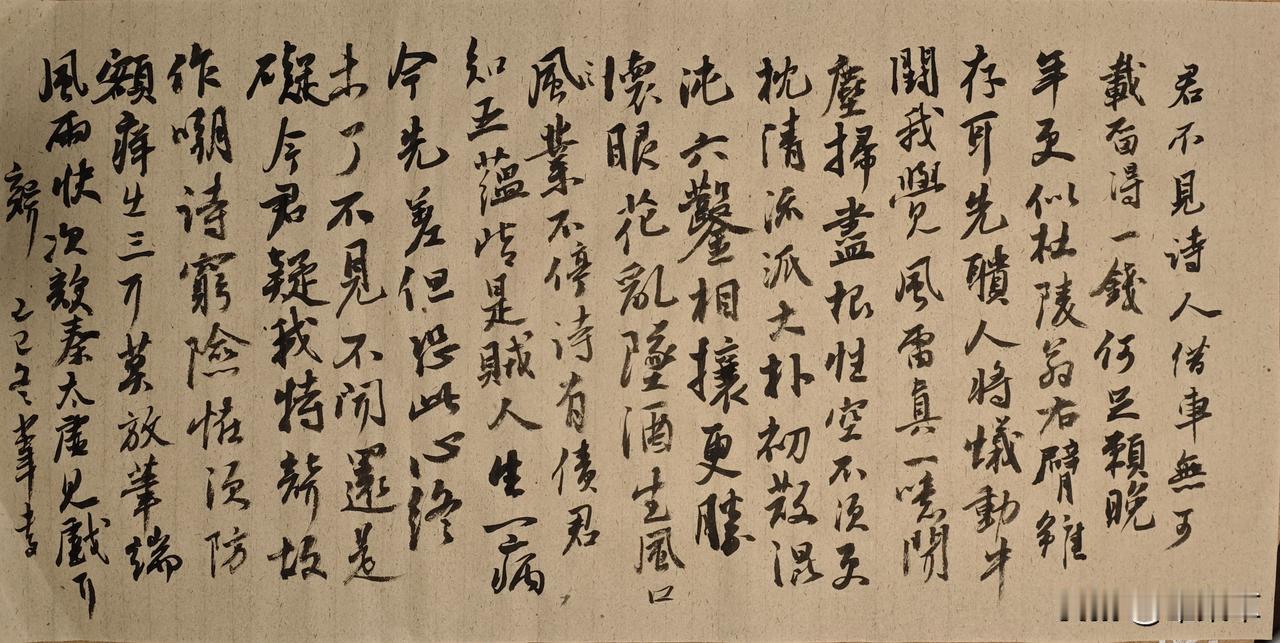 君不見詩人借車無可
載留得一錢何足賴晚
年更似杜陵翁右臂雖
存耳先聵人將蟻動牛
鬪我覺風雷真一噫聞
塵掃盡根性空不須更
枕清流派大朴初散混
沌六鑿相攘更勝
懷眼花亂墜酒生風口
風業不停詩有債君
知五蘊皆是賊人生一病
今先差但恐此心終
未了不見不聞還是
礙今君疑我特聾故
作嘲詩窮險怪須防
額痒出三耳莫放筆端
風雨快次韻秦太虛見戲耳
聾 乙巳冬